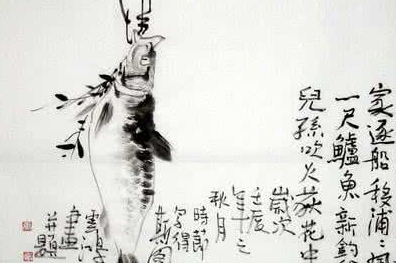 家逐船移浦〻
一尺鱸魚新釣
兒孫吹火荻花中
歲次
壬辰
年之
秋月
時節
寫得
雲鴻
畫
并題